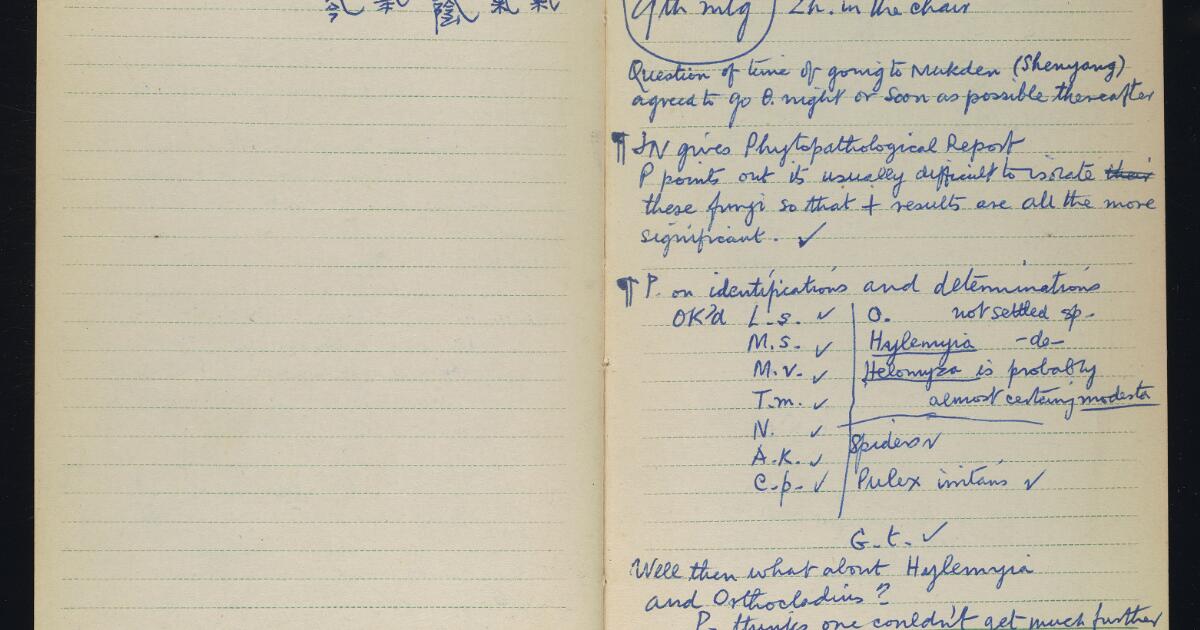 氣 陰
9th mtg Zh. in the chair
Question of time of going to Mukden (Shenyang)
agreed to go θ. night or soon as possible thereafter
¶ JN gives Phytopathological Report
P points out its usually difficult to isolate their
these fungi so that + results are all the more
significant. ✓
¶ P. on identifications and determinations
OK'd L.s. ✓ O. not settled sp.
M.s. ✓ Hylemyia -do-
M.v. ✓ Helomyza is probably
T.m. ✓ almost certainly modesta
N. ✓
A.K. ✓ Spiders ✓
C.p. ✓ Pulex irritans ✓
G.t. ✓
Well then what about Hylemyia
and Orthocladius?
P. thinks one couldn't get much further